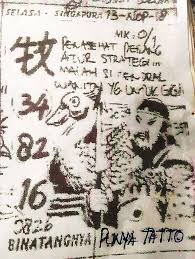 SELASA - SINGAPURA 13-NOP-8
MK: 0/1
PENASEHAT PERANG
ATUR STRATEGI
MALAH SI JENDRAL
WANITA YG UNTUK
34
82
16
3826
BINATANGNYA PUNYA TATTO